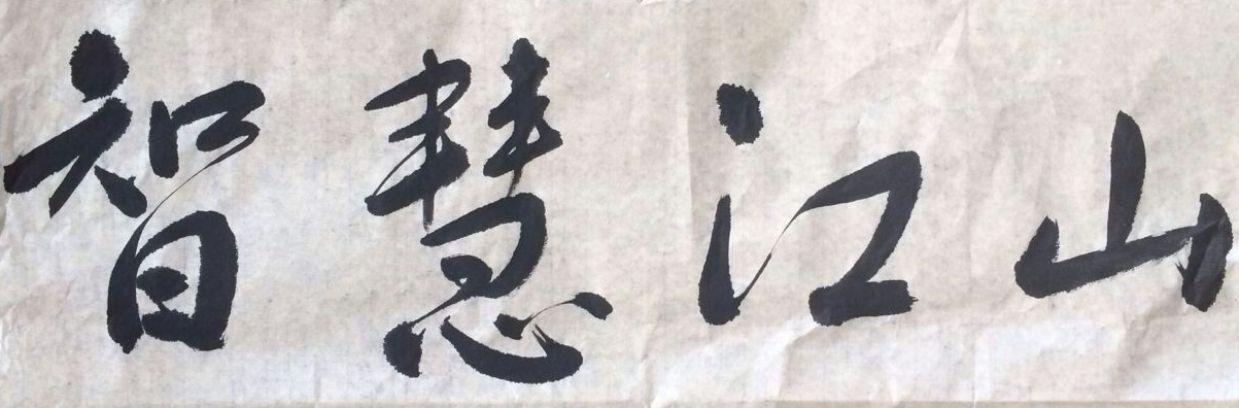 智慧江山